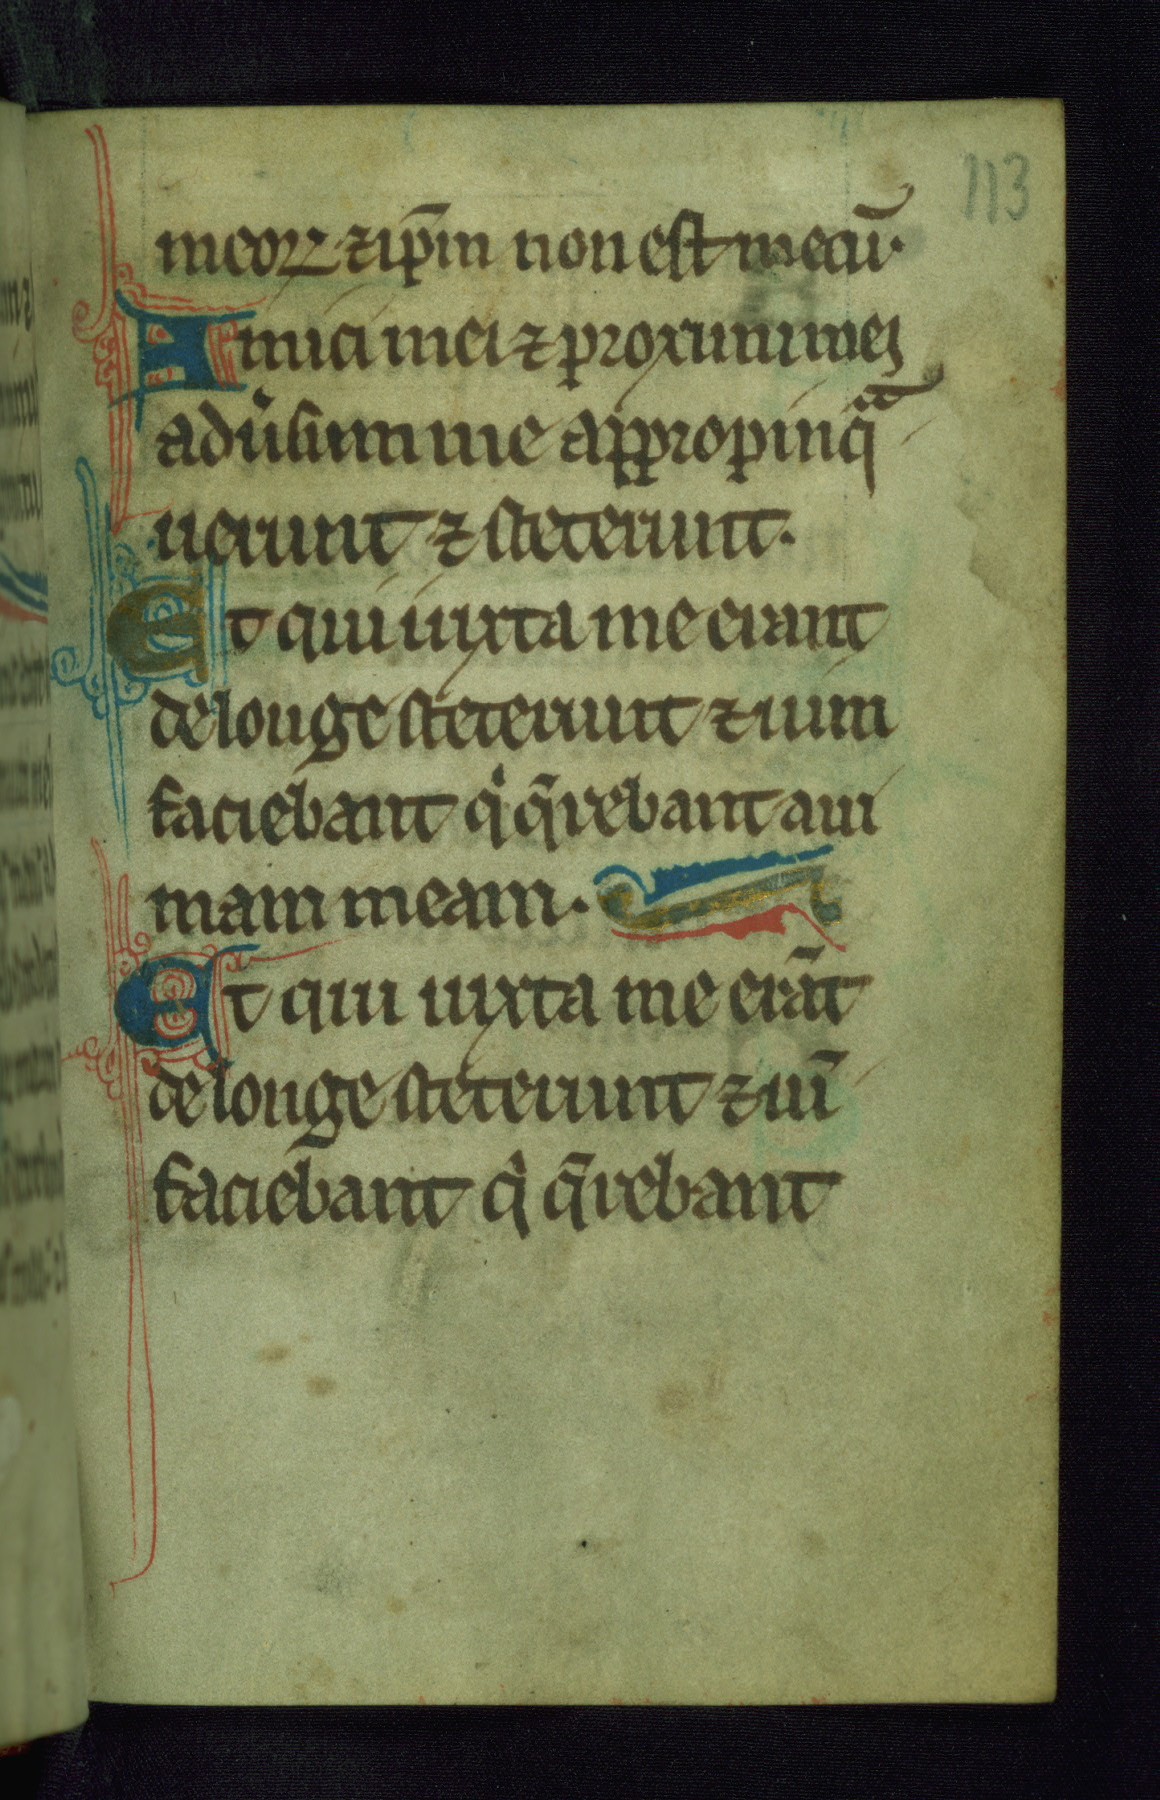 113
meoꝝ ⁊ ip̄m non est mecū·
Amici mei ⁊ proximi mei
adu̓sum me appropinqᷓ
uerunt ⁊ steterunt·
Et qui iuxta me erant
de longe steterunt ⁊ uim
faciebant qͥ q̄rebant ani
mam meam·
Et qui iuxta me erāt
de longe steterunt ⁊ uī
faciebant qͥ q̄rebant